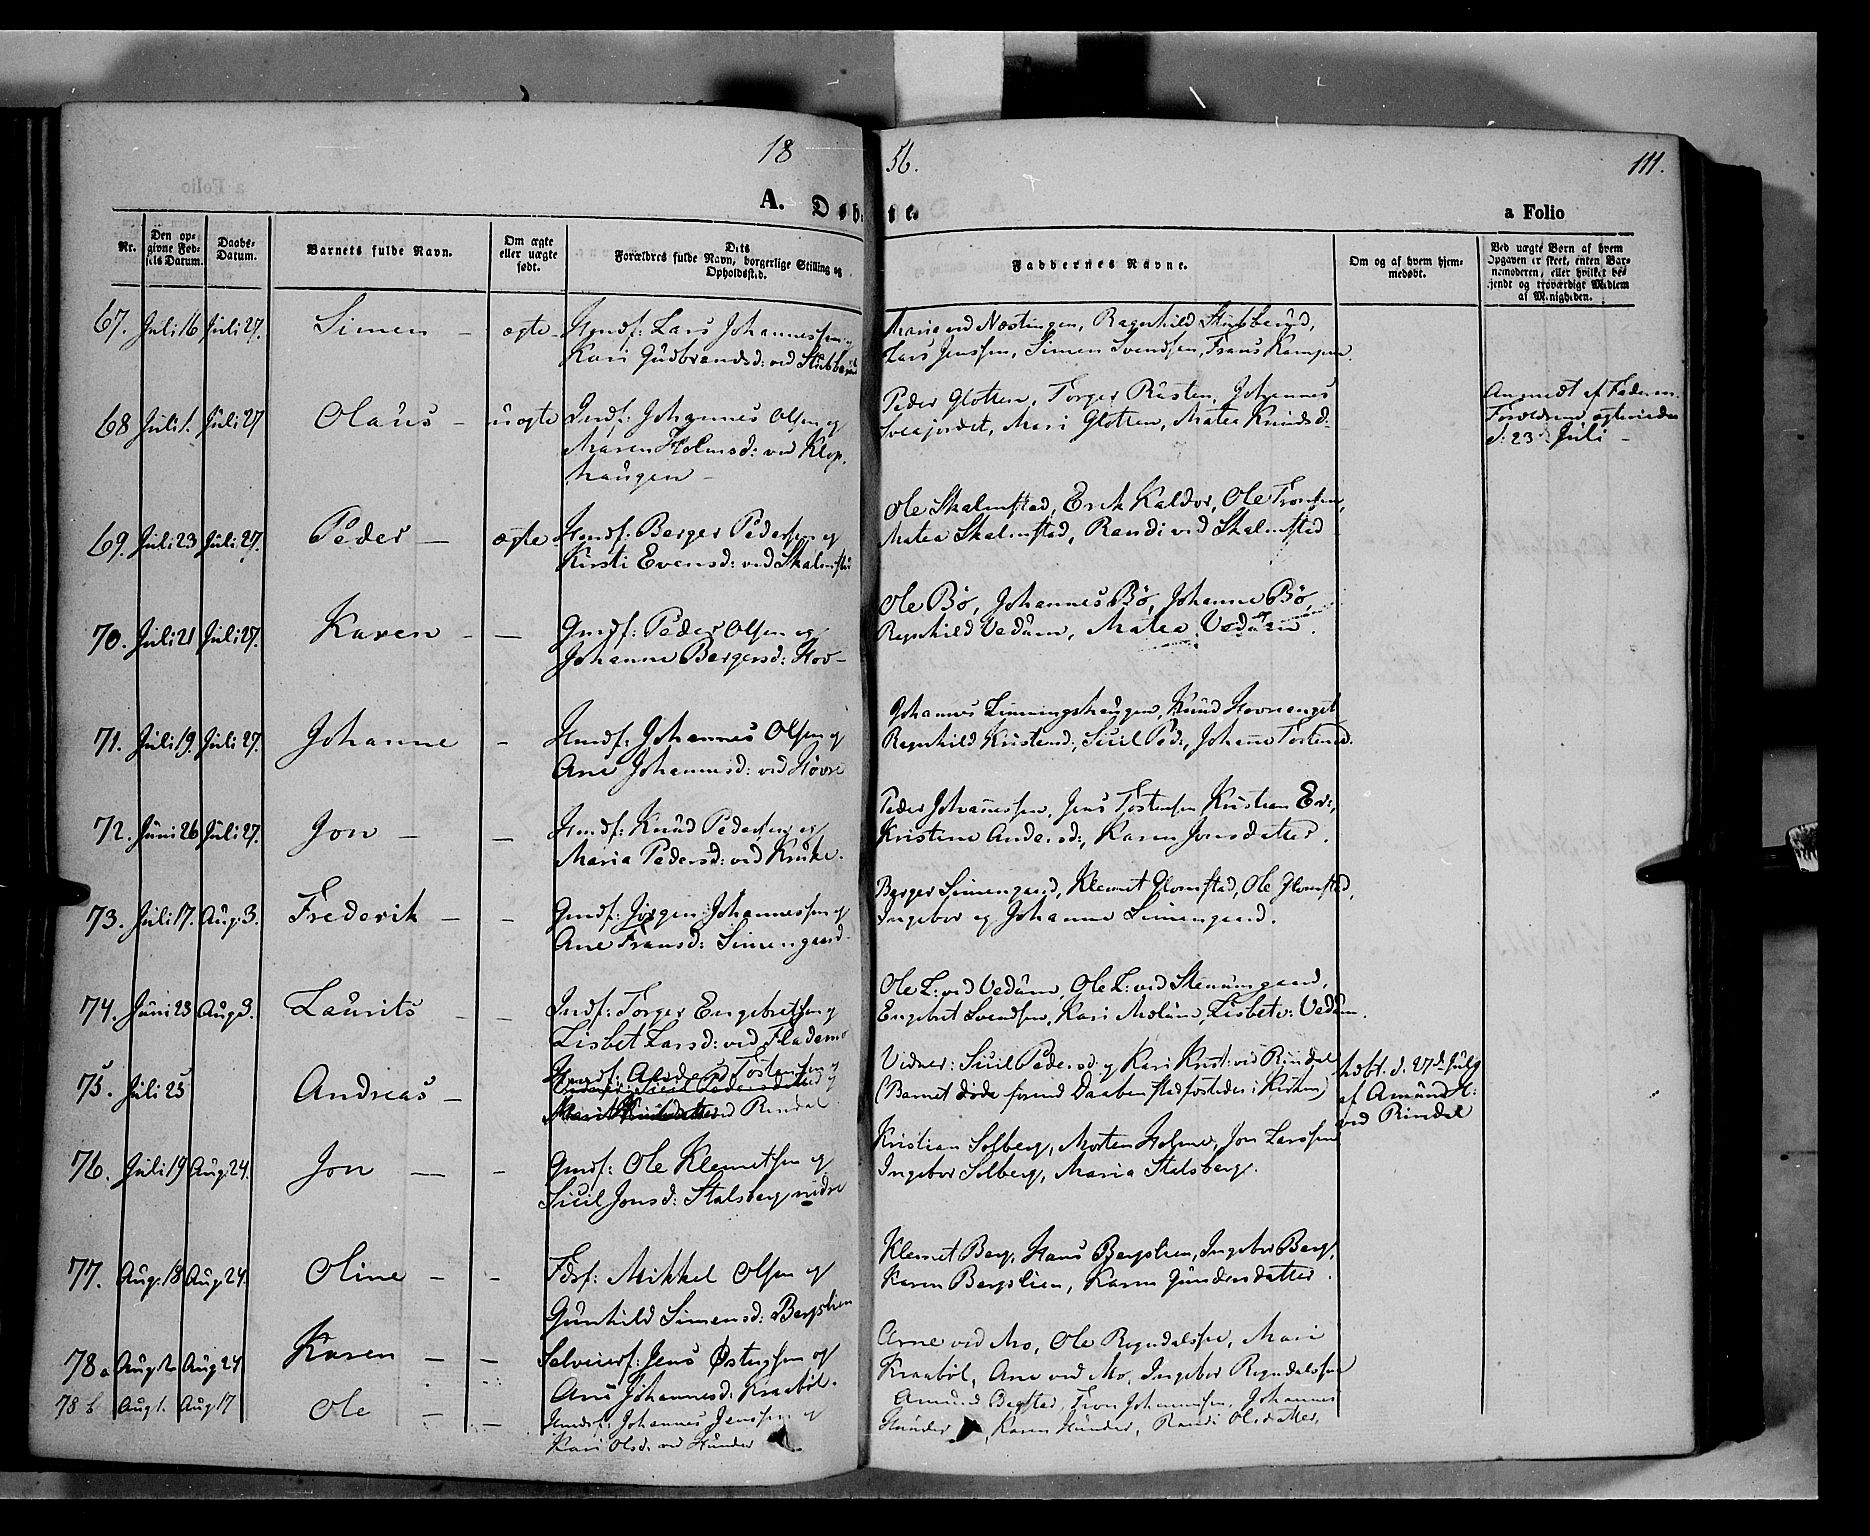 18 56. 111.
A. Døbte. a Folio
Nr. Den opgivne Fødsels Datum. Daabs-Datum. Barnets fulde Navn. Om ægte eller uægte født. Dets Forældres fulde Navn, borgerlige Stilling og Opholdssted. Faddernes Navne. Om og af hvem hjemmedøbt. Ved uægte Børn af hvem Opgaven er skeet, enten Barnemoderen, eller hvilket bekjendt og troværdigt Medlem af Menigheden.
67. Juli 16 Juli 27. Simen – ægte Huusmf: Lars Johannessen og
Kari Gudbrandsd: ved Stubberud
Ragnhild Stubberud,
Lars Jenssen, Simen Svendsen, Frans Kampen.
68 Juli 1. Juli 27 Olaus – uægte Indf: Johannes Olsen og
Maren Holmsd: ved Klop-
haugen –
Peder Glotten, Torger Rusten, Johannes
Sveajordet, Mari Glotten, Matea Knudsd:
Anmeldt af Faderen.
Forældrene ægteviede
d: 23d Juli –
69. Juli 23 Juli 27. Peder – ægte Huusmf: Berger Pedersen og
Kirsti Evensd: ved Skalmstad
Ole Skalmstad, Erik Kaldor, Ole Tronsen,
Matea Skalmstad, Randi ved Skalmstad
70. Juli 21 Juli 27. Karen – – Gmdf: Peder Olsen og
Johanne Bergersd: Hov –
Ole Bø, Johannes Bø, Johanne Bø,
Ragnhild Vedum, Matea Vedum.
71. Juli 19. Juli 27. Johanne – Huusmf: Johannes Olsen og
Ane Johannesd: ved Høvre
Johannes Linningshaugen, Knud Hovreenget
Ragnhild Kristensd:, Sicil Ped:, Johane Tostensd.
72. Juni 26 Juli 27. Jon – – Huusmf: Knud Pedersen og
Maria Pedersd: ved Kruke.
Peder Johannessen, Jens Tostensen, Kristian Er:,
Kristine Andersd:, Karen Jonsdatter.
73. Juli 17. Aug. 3. Frederik – – Gmdf: Jørgen Johannessen og
Ane Fransd: Simengaard.
Berger Simengaard, Klemet Glomstad, Ole Glomstad,
Ingebor og Johanne Simengaard.
74. Juni 23 Aug 3. Laurits – – Indf: Torger Engebretsen og
Lisbet Larsd: ved Flademo
Ole L: ved Vedum, Ole L: ved Stenumgaard,
Engebret Svendsen, Kari Molum, Lisbet v: Vedum.
75. Juli 25 Andreas – Huusmf: Tostensen og
ved Rindal
Vidner: Sicil Pedersd: og Kari Krist: ved Rindal
(Barnet døde forend Daaben stadfæstedes i Kirken)
hdbt. d. 27d Juli
af Amund H:
ved Rindal
76. Juli 19 Aug. 24. Jon – – Gmdf: Ole Klemetsen og
Sicil Jonsd: Stalsberg nedre
Kristian Solberg, Morten Holme, Jon Larssen
Ingebor Solberg, Maria Stalsberg.
77. Aug. 18 Aug 24. Oline – – Fdrf: Mikkel Olsen og
Gunhild Simensd: Bergslien
Klemet Berg, Hans Bergslien, Ingebor Berg,
Karen Bergslien, Karen Gundersdatter.
78 a Aug. 2 Aug 24 Karen – – Selveierf: Jens Østensen og
Ane Johannesd: Kraabøl.
Arne ved Mo, Ole Rogndalssen, Mari
Kraabøl, Ane ved Mo, Ingebor Rogndalssen
78 b Aug 1. Aug 17 Ole – – Huusmf: Johannes Jenssen og
Kari Olsd: ved Hunder
Amund Bagstad, Tron Johannessen, Johannes
Hunder, Karen Hunder, Randi Olsdatter,